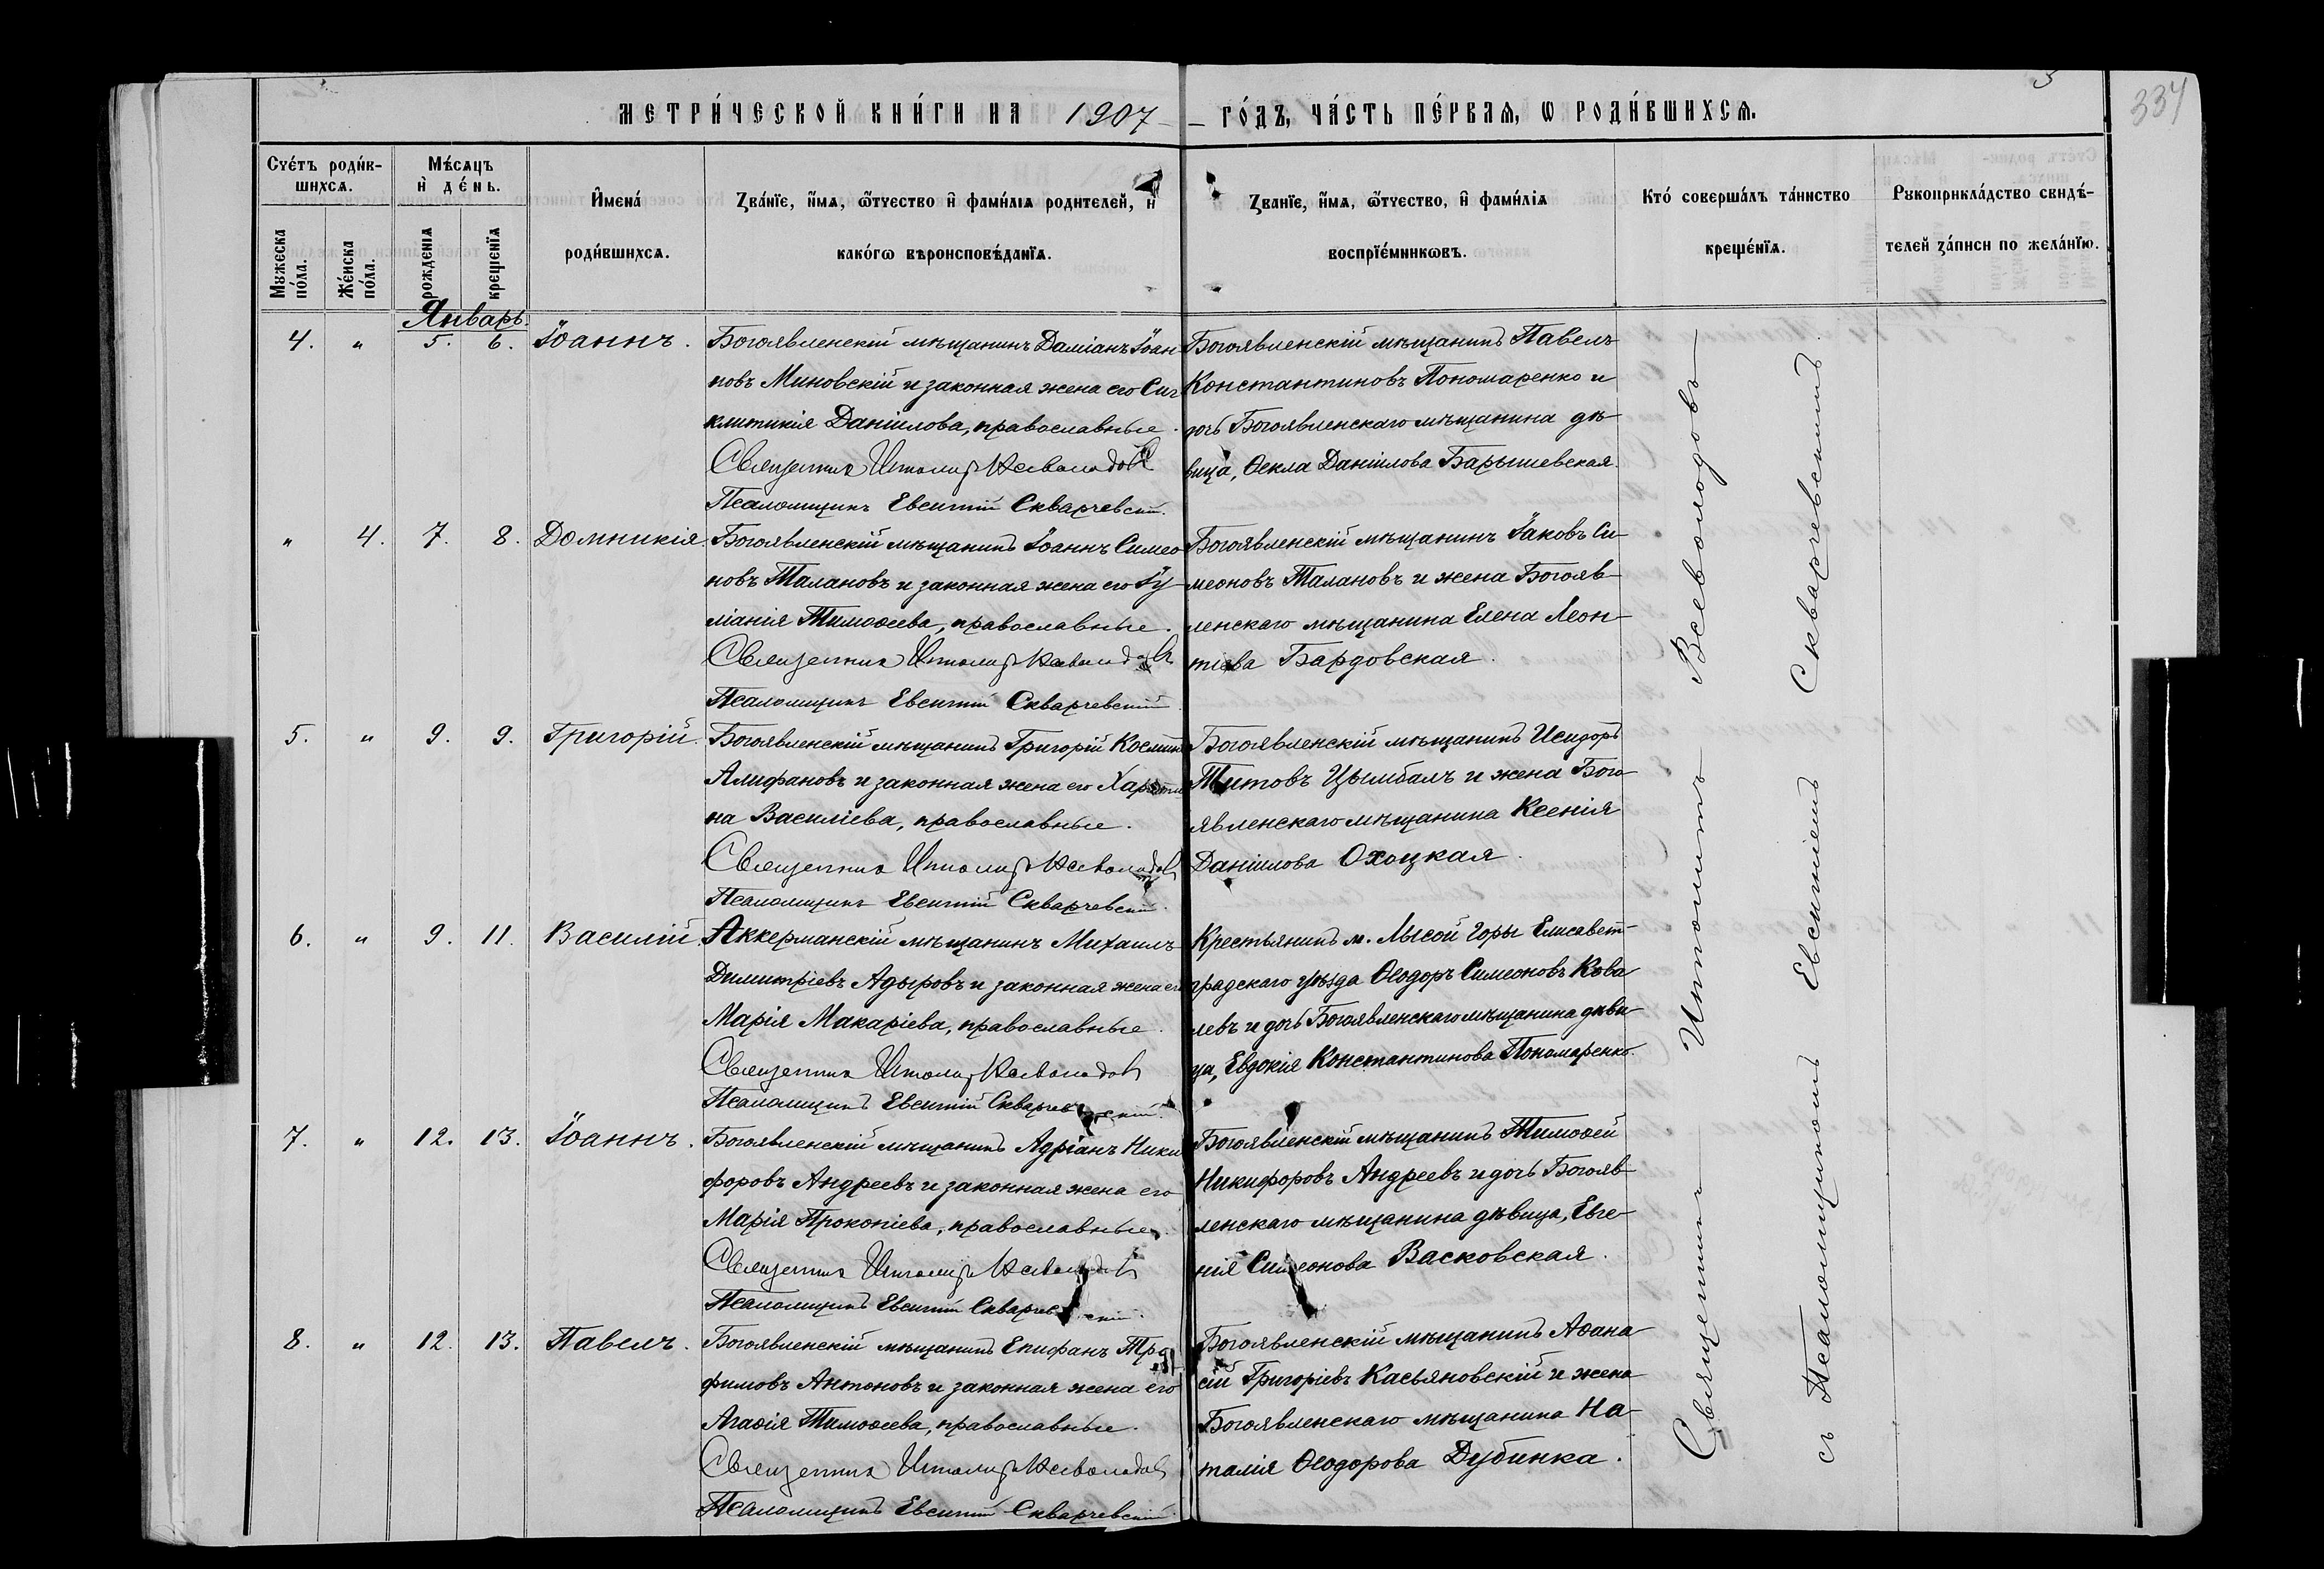 МЕТРИ́ЧЕСКОЙ КНИ́ГИ НА 1907 ГО́ДЪ, ЧА́СТЬ ПЕ́РВАѦ, Ѡ РОДИ́ВШИХСѦ.
334
Счéтъ роди́в-
шихсѧ.
Мѣ́сѧцъ
и҆ де́нь.
Мꙋжеска по́ла.
Же́нска по́ла.
рождениѧ
крещенїѧ
И҆мена́
роди́вшихсѧ.
Зва́нїе, и҆́мѧ, ѻ҆́тчество и҆ фами́лїѧ родителей, и҆
како́гѡ вѣроисповѣ́данїѧ.
Званїе, и҆́мѧ, ѻ҆́тчество, и҆ фами́лїѧ
воспрїе́мникѡвъ.
Кто́ соверша́лъ та́инство
креще́нїѧ.
Рꙋкоприкла́дство свидѣ́-
телей за́писи по жела́нїю.
Январь.
4. " 5. 6. Іоаннъ.
Богоявленскій мѣщанинъ Даміанъ Іоан
новъ Миновскій и законная жена его Син
клитикія Даніилова, православные.
Священникъ Ипполитъ Всеволодовъ
Псаломщикъ Евсигній Скварчевскій.
Богоявленскій мѣщанинъ Павелъ
Константиновъ Пономаренко и
дочь Богоявленскаго мѣщанина дѣ-
вица, Ѳекла Даніилова Барышевская.
" 4. 7. 8. Домникія.
Богоявленскій мѣщанинъ Іоаннъ Симео
новъ Талановъ и законная жена его Іу-
ліанія Тимоѳеева, православные.
Священникъ Ипполитъ Всеволодовъ
Псаломщикъ Евсигній Скварчевскій
Богоявленскій мѣщанинъ Іаковъ Си-
меоновъ Талановъ и жена Богояв-
ленскаго мѣщанина Елена Леон-
тіева Бардовская.
5. " 9. 9. Григорій.
Богоявленскій мѣщанинъ Григорій Космин
Алифановъ и законная жена его Харити
на Василіева, православные.
Священникъ Ипполитъ Всеволодовъ
Псаломщикъ Евсигній Скварчевскій.
Богоявленскій мѣщанинъ Исидоръ
Титовъ Цымбалъ и жена Бого-
явленскаго мѣщанина Ксенія
Даніилова Охоцкая.
6. " 9. 11. Василій.
Аккерманскій мѣщанинъ Михаилъ
Димитріевъ Адыровъ и законная жена его
Марія Макаріева, православные.
Священникъ Ипполитъ Всеволодовъ
Псаломщикъ Евсигній Скварчевскій.
Крестьянинъ м. Лысой Горы Елисавет-
градскаго уѣзда Ѳеодоръ Симеоновъ Кова
левъ и дочь Богоявленскаго мѣщанина дѣви-
ца, Евдокія Константинова Пономаренко.
7. " 12. 13. Іоаннъ.
Богоявленскій мѣщанинъ Адріанъ Ники
форовъ Андреевъ и законная жена его
Марія Прокопіева, православные.
Священникъ Ипполитъ Всеволодовъ
Псаломщикъ Евсигній Скварчевскій.
Богоявленскій мѣщанинъ Тимоѳей
Никифоровъ Андреевъ и дочь Богояв-
ленскаго мѣщанина дѣвица, Евге-
нія Симеонова Васковская.
8. " 12. 13. Павелъ.
Богоявленскій мѣщанинъ Епифанъ Тро
фимовъ Антоновъ и законная жена его
Агаѳія Тимоѳеева, православные.
Священникъ Ипполитъ Всеволодовъ
Псаломщикъ Евсигній Скварчевскій.
Богоявленскій мѣщанинъ Аѳана
сій Григоріевъ Касьяновскій и жена
Богоявленскаго мѣщанина На-
талія Ѳеодорова Дубинка.
Священникъ Ипполитъ Всеволодовъ
съ Псаломщикомъ Евсигніемъ Скварчевскимъ.